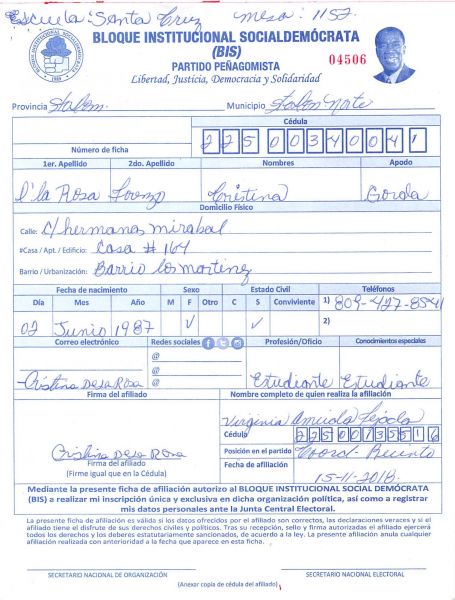 Escuela: Santa Cruz Mesa: 1152
BLOQUE INSTITUCIONAL SOCIALDEMÓCRATA
(BIS)
PARTIDO PEÑAGOMISTA
04506
Libertad, Justicia, Democracia y Solidaridad
Provincia Municipio Norte
Cédula
Número de ficha 225 0034004 1
1er. Apellido 2do. Apellido Nombres Apodo
D'la Rosa Lorenzo Cristina Gorda
Domicilio Físico
Calle: C/hermanas mirabal
#Casa / Apt. / Edificio: Casa # 164
Barrio / Urbanización: Barrio los martinez
Fecha de nacimiento Sexo Estado Civil Teléfonos
Día Mes Año M F Otro C S Conviviente 1) 809-427-8541
02 Junio 1987 ✓ ✓ 2)
Correo electrónico Redes sociales Profesión/Oficio Conocimientos especiales
@
@
Cristina De La Rosa @ Estudiante Estudiante
Firma del afiliado Nombre completo de quien realiza la afiliación
Virginia
Cédula 22500135516
Cristina De La Rosa Posición en el partido Coord. Recinto
Firma del afiliado Fecha de afiliación
(Firme igual que en la Cédula) 15-11-2018
Mediante la presente ficha de afiliación autorizo al BLOQUE INSTITUCIONAL SOCIAL DEMÓCRATA
(BIS) a realizar mi inscripción única y exclusiva en dicha organización política, así como a registrar
mis datos personales ante la Junta Central Electoral.
La presente ficha de afiliación es válida si los datos ofrecidos por el afiliado son correctos, las declaraciones veraces y si el
afiliado tiene el disfrute de sus derechos civiles y políticos. Tras su recepción, sello y firma autorizadas el afiliado ejercerá
todos los derechos y los deberes estatutariamente sancionados, de acuerdo a la ley. La presente afiliación anula cualquier
afiliación realizada con anterioridad a la fecha que aparece en esta ficha.
SECRETARIO NACIONAL DE ORGANIZACIÓN SECRETARIO NACIONAL ELECTORAL
(Anexar copia de cédula del afiliado)